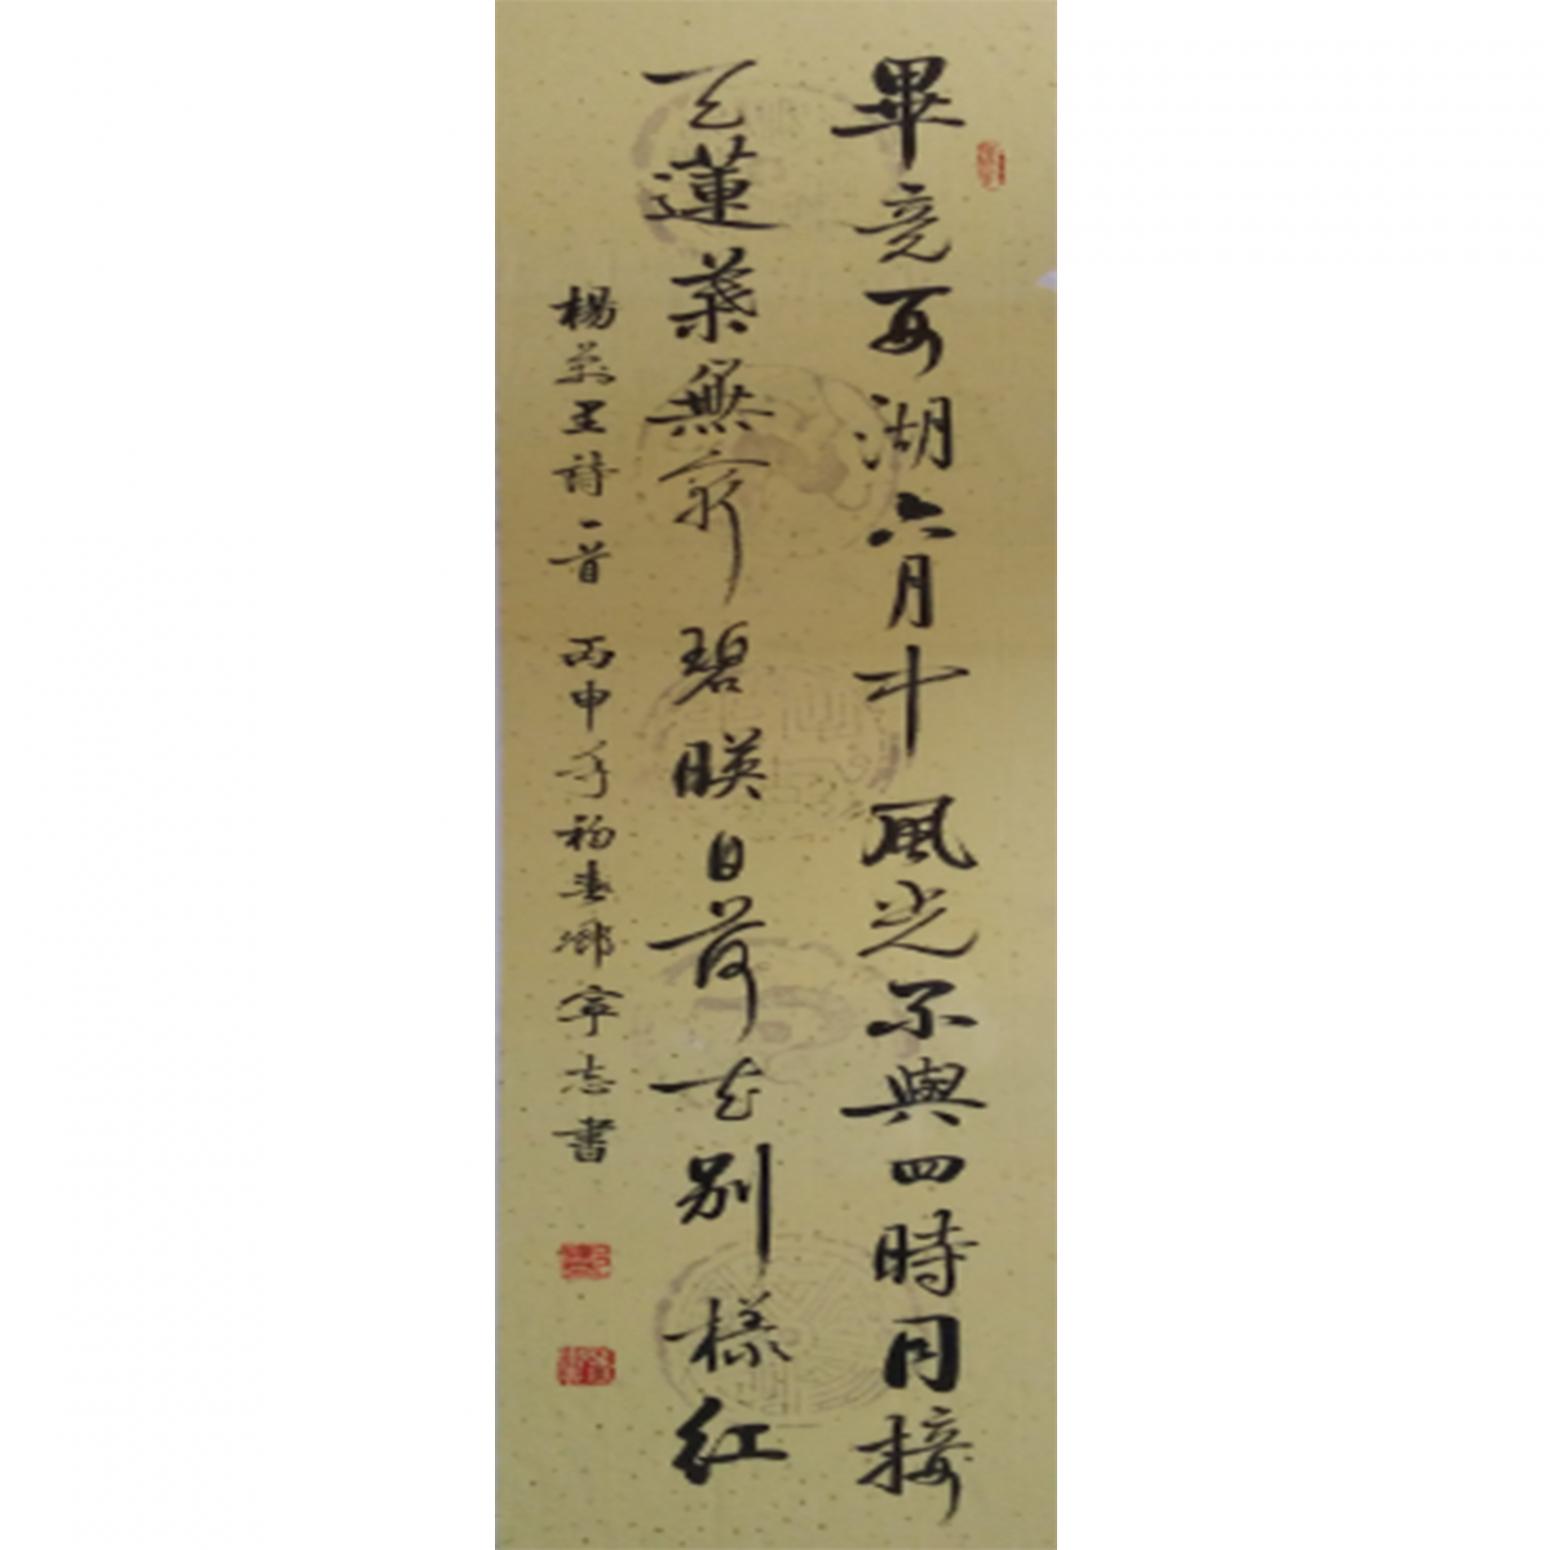 畢竟西湖六月中風光不與四時同接
天蓮葉無窮碧暎日荷花別樣紅
楊萬里詩一首 丙申年初春鄉寧志書